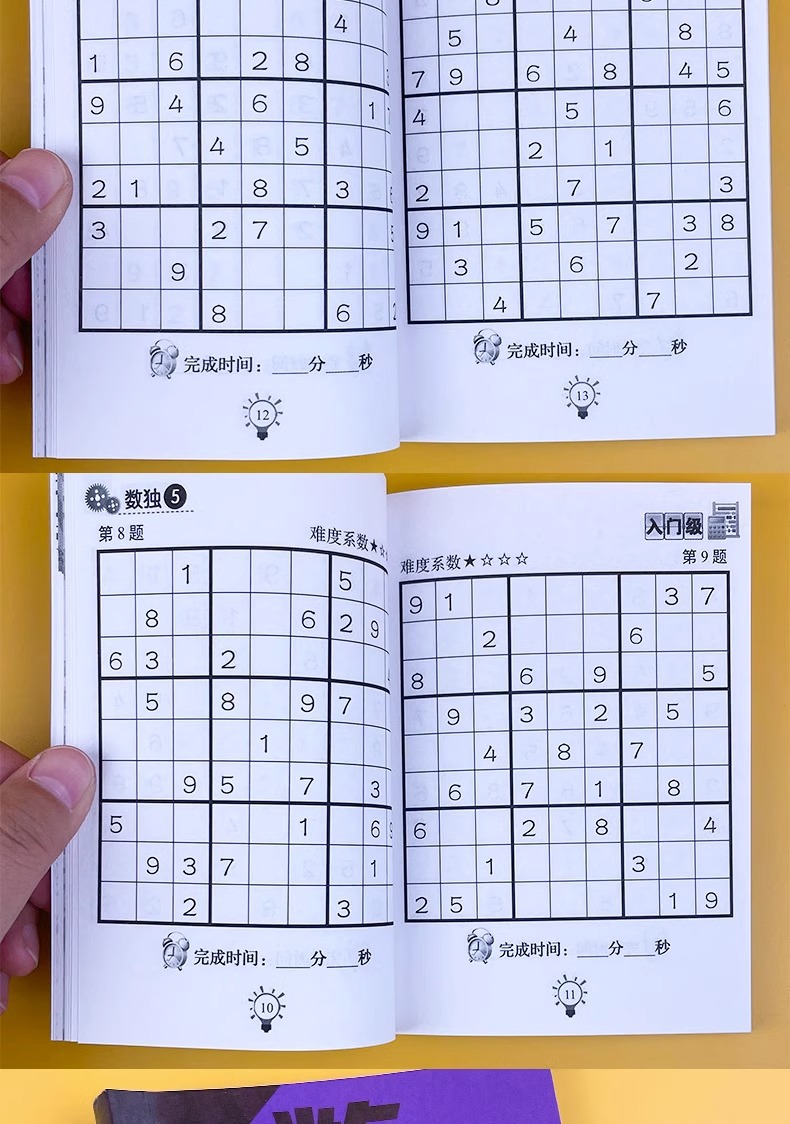 4
1 6 2 8
9 4 6 1
4 5
2 1 8 3
3 2 7
9
8 6
完成时间：____分____秒
12
5 4 8
7 9 6 8 4 5
4 5 6
2 1
2 7 3
9 1 5 7 3 8
3 6 2
4 7
完成时间：____分____秒
13
数独 5
第8题 难度系数★☆
1 5
8 6 2 9
6 3 2
5 8 9 7
1
9 5 7 3
5 1 6
9 3 7 1
2 3
完成时间：____分____秒
10
入门级
难度系数★☆☆☆ 第9题
9 1 3 7
2 6
8 6 9 5
9 3 2 5
4 8 7
6 7 1 8
6 2 8 4
1 3
2 5 1 9
完成时间：____分____秒
11